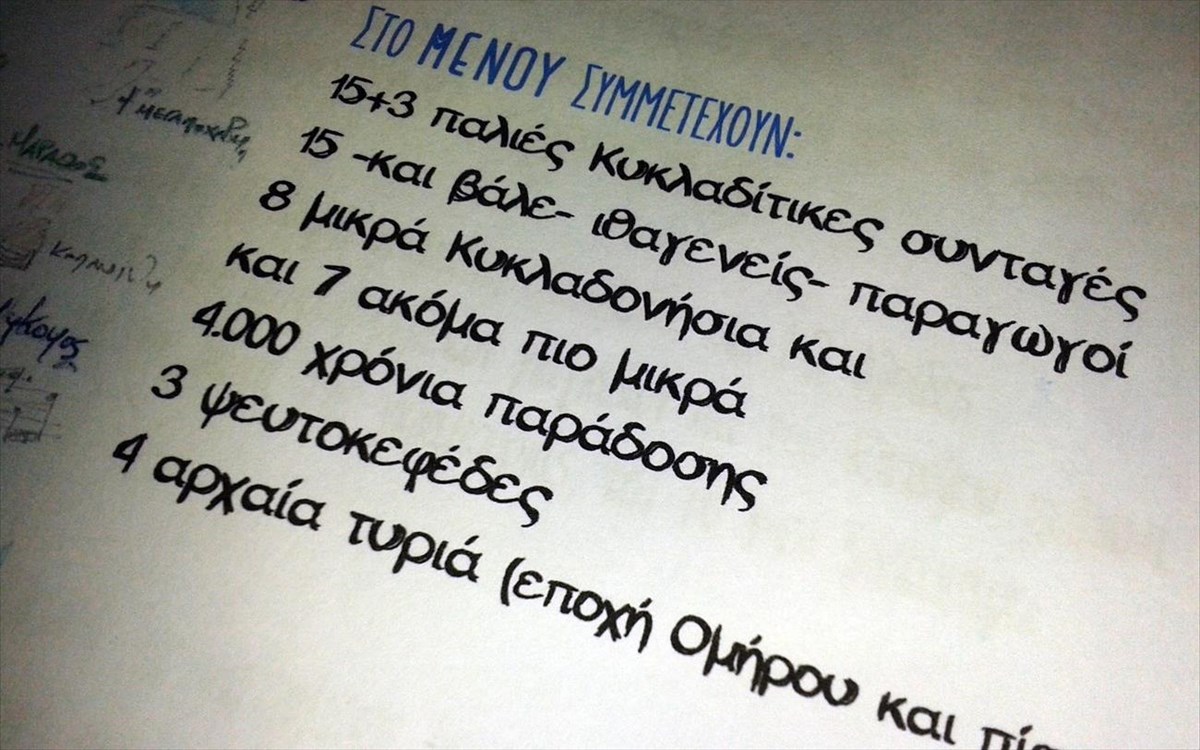 ΣΤΟ ΜΕΝΟΥ ΣΥΜΜΕΤΕΧΟΥΝ:
15+3 παλιές Κυκλαδίτικες συνταγές
15 -και βάλε- ιθαγενείς- παραγωγοί
8 μικρά Κυκλαδονήσια και
και 7 ακόμα πιο μικρά
4.000 χρόνια παράδοσης
3 ψευτοκεφέδες
4 αρχαία τυριά (εποχή Ομήρου και
ΜΑΡΑΘΟΣ